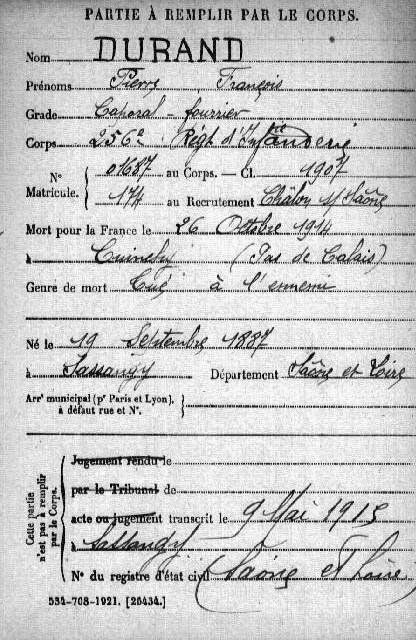 PARTIE À REMPLIR PAR LE CORPS.
Nom DURAND
Prénoms Pierre François
Grade Caporal - fourrier
Corps 256e Régt d'Infanterie
N° Matricule. { 01687 au Corps. — Cl. 1907
174 au Recrutement Châlon s/ Saône
Mort pour la France le 26 Octobre 1914
à Cuinchy (Pas de Calais)
Genre de mort Tué à l'ennemi
Né le 19 Septembre 1887
à Sassangy Département Saône et Loire
Arrt municipal (pr Paris et Lyon), à défaut rue et N°. }
Cette partie n'est pas à remplir par le Corps. {
Jugement rendu le
par le Tribunal de
acte ou jugement transcrit le 9 Mai 1915
à Sassangy
N° du registre d'état civil (Saône et Loire)
534-708-1921. [26434.]